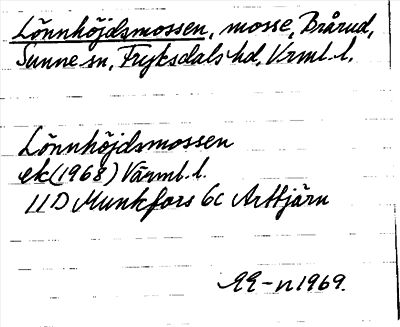 Lönnhöjdsmossen, mosse, Brårud,
Sunne sn, Fryksdals hd, Vrml. l.
Lönnhöjdsmossen
ek (1968) Värml. l.
11D Munkfors 6c Arttjärn
-n 1969.